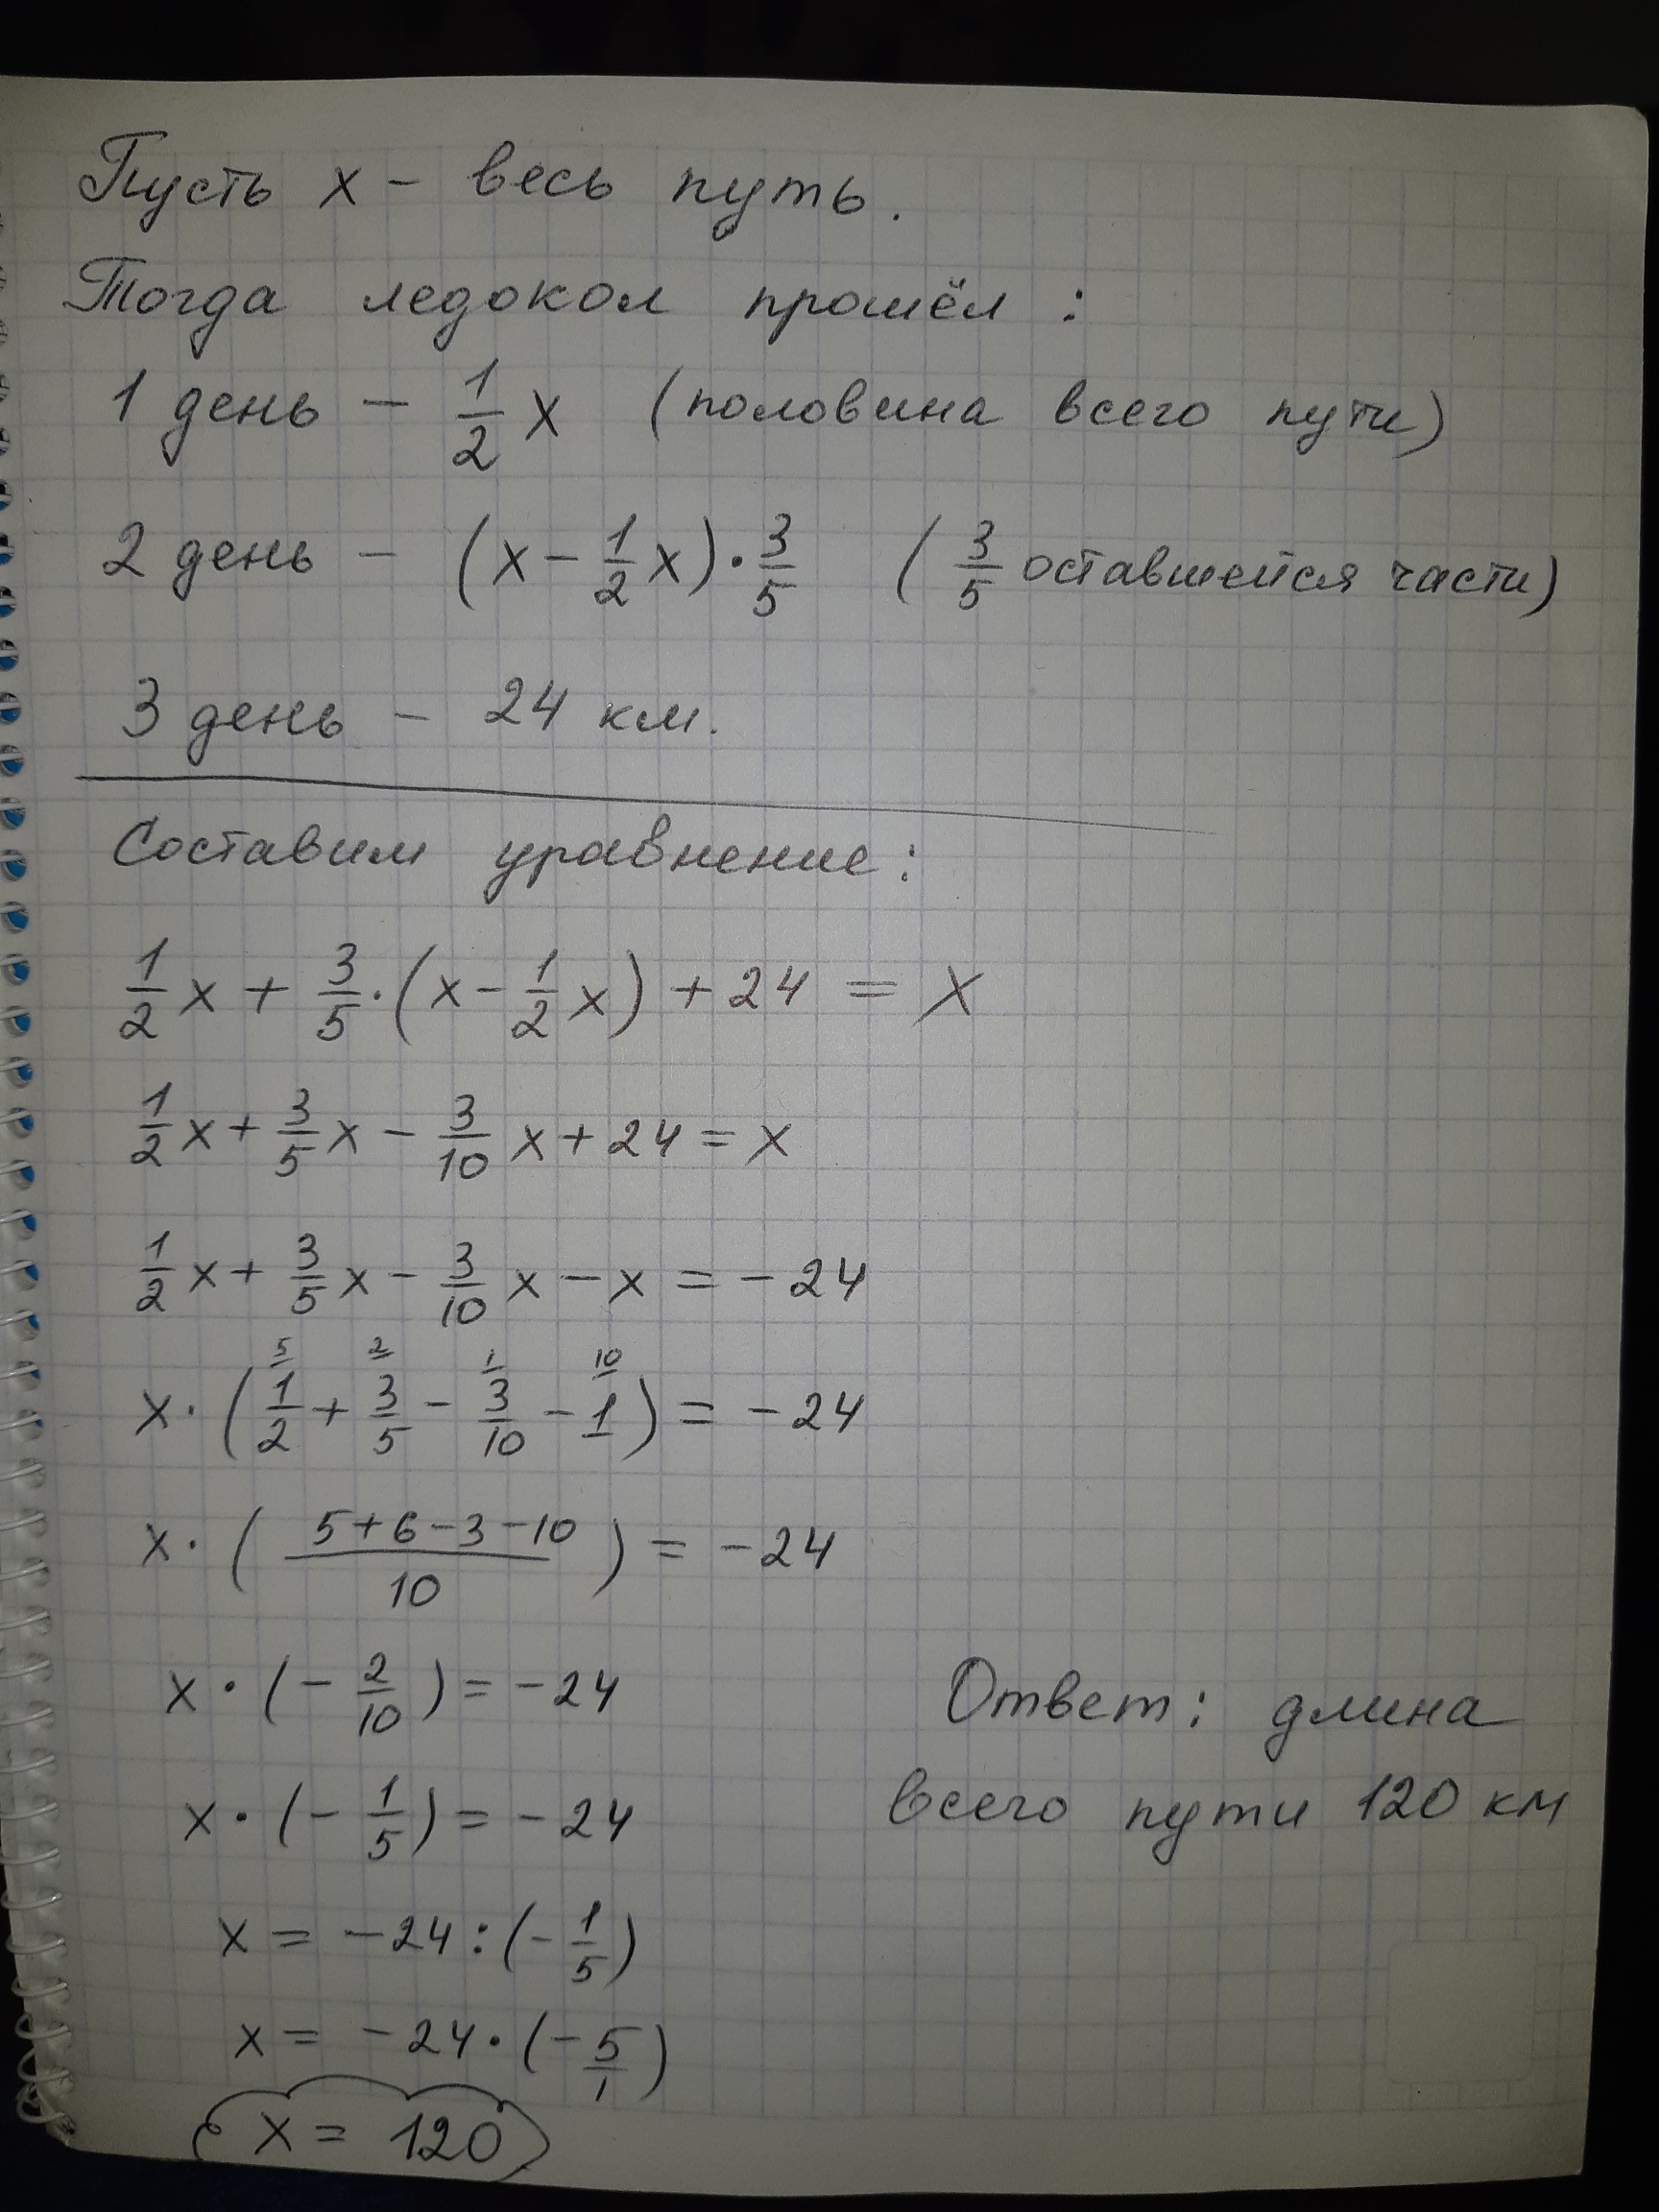 Пусть x - весь путь.
Тогда ледокол прошёл :
1 день - 1/2 x (половина всего пути)
2 день - (x - 1/2 x) · 3/5 (3/5 оставшейся части)
3 день - 24 км.
Составим уравнение:
1/2 x + 3/5 · (x - 1/2 x) + 24 = x
1/2 x + 3/5 x - 3/10 x + 24 = x
1/2 x + 3/5 x - 3/10 x - x = - 24
5 2 1 10
x · (1/2 + 3/5 - 3/10 - 1) = - 24
x · ((5 + 6 - 3 - 10)/10) = - 24
x · (- 2/10) = - 24
x · (- 1/5) = - 24
x = - 24 : (- 1/5)
x = - 24 · (- 5/1)
x = 120
Ответ: длина
всего пути 120 км